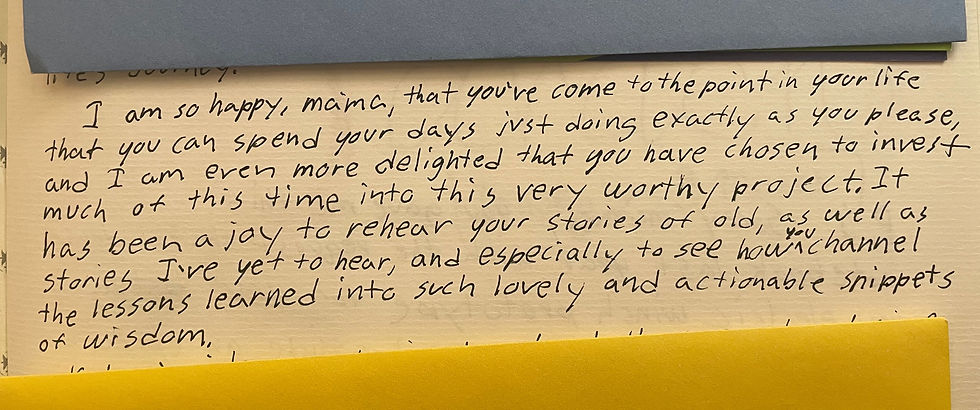 life's journey.
I am so happy, mama, that you've come to the point in your life
that you can spend your days just doing exactly as you please,
and I am even more delighted that you have chosen to invest
much of this time into this very worthy project. It
has been a joy to rehear your stories of old, as well as
stories I've yet to hear, and especially to see how you channel
the lessons learned into such lovely and actionable snippets
of wisdom.